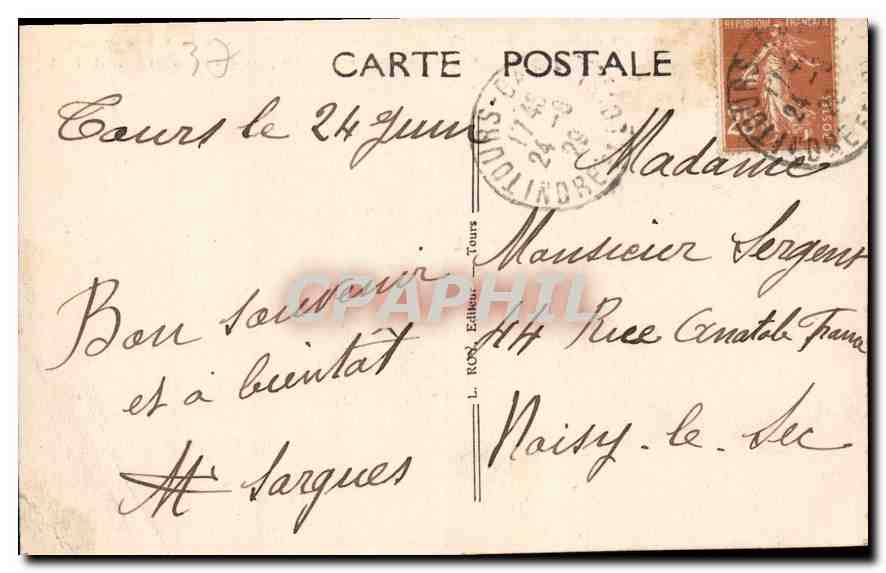 37
CARTE POSTALE
Tours le 24 Juin
Bon souvenir
et à bientôt
M Sargues
L. ROQ, Editeur — Tours
TOURS
17 45
24 - 6
29
INDRE
REPUBLIQUE FRANÇAISE
POSTES
Madame
Monsieur Sergent
44 Rue Anatole France
Noisy-le-Sec
CPAPHIL